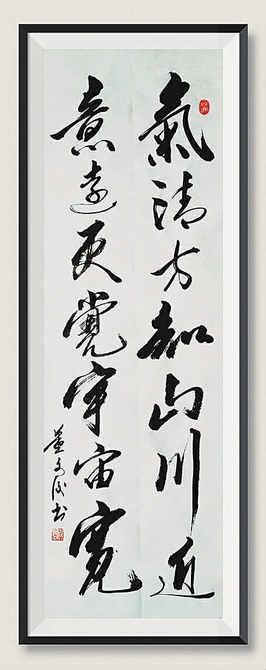 氣清方知山川近
意遠更覺宇宙寬
董文政书